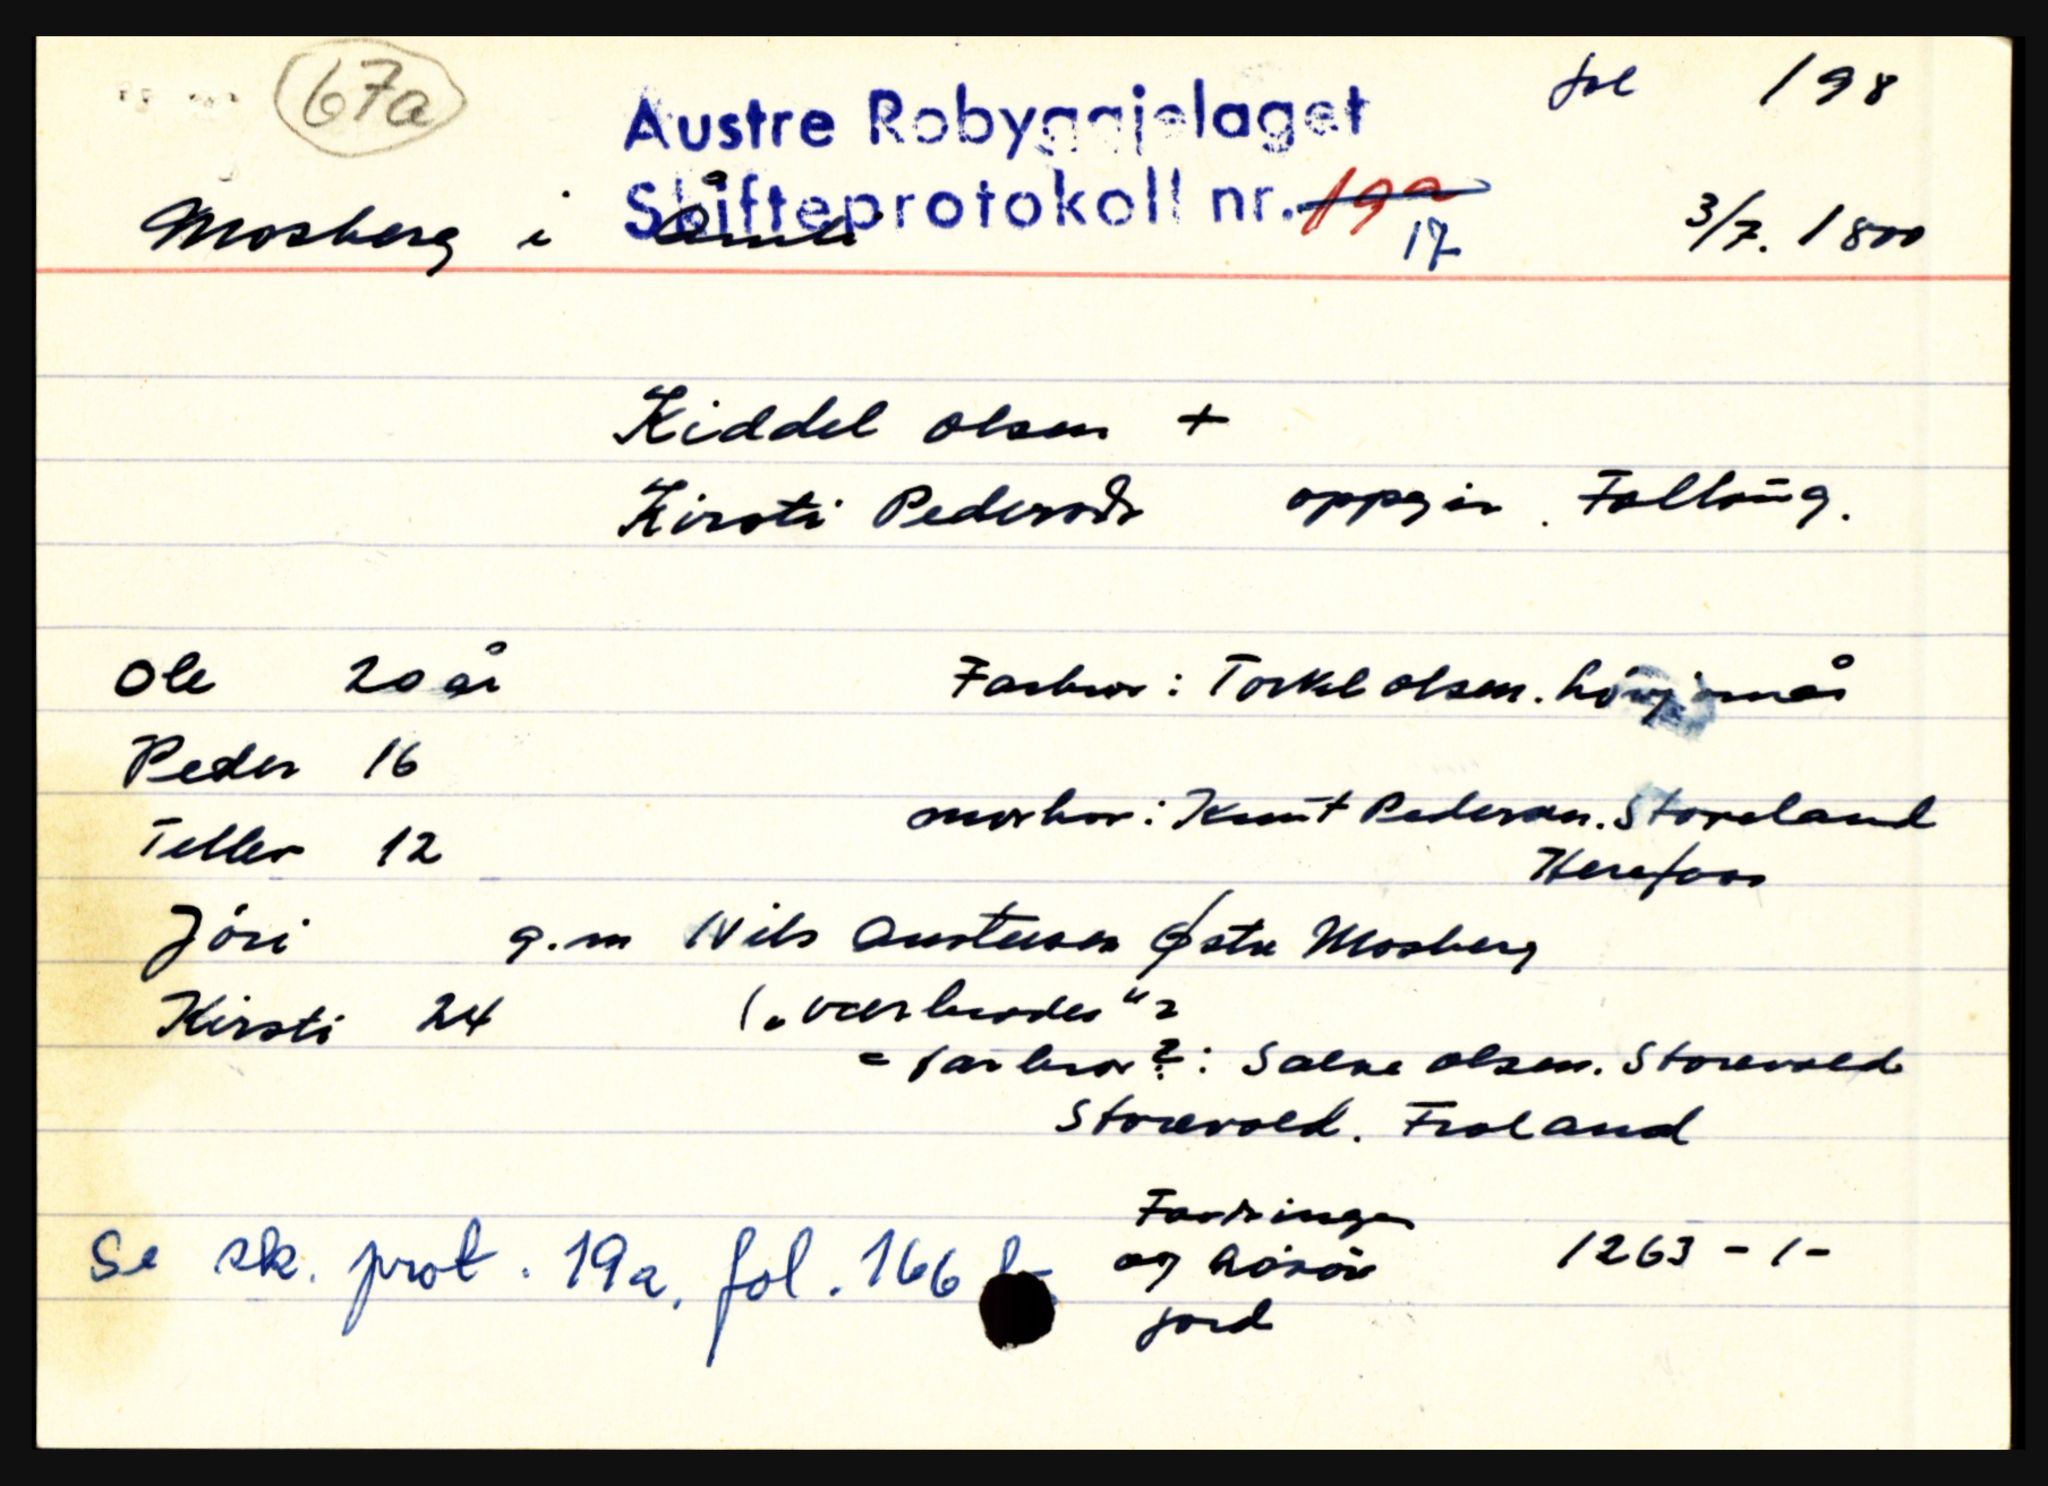 67a
fol 198
Austre Robyggjelaget
Skifteprotokoll nr. 19a
17
Mosberg i Åmli
3/7. 1800
Kiddel Olsen +
Kirsti Pedersdr oppgir. Fallbug.
Ole 20 år
Farbror: Torkel Olsen.
Peder 16
morbror: Knut Pedersen. Storeland
Herefoss
Tellev 12
Jóri g.m Nils Austensen Østre Mosberg
Kirsti 24 („værbroder"?
= farbror?: Salve Olsen. Storevold
Storevold. Froland
Fordringer
og løsøre 1263 - 1 -
jord
Se sk. prot. 19a, fol. 166 b